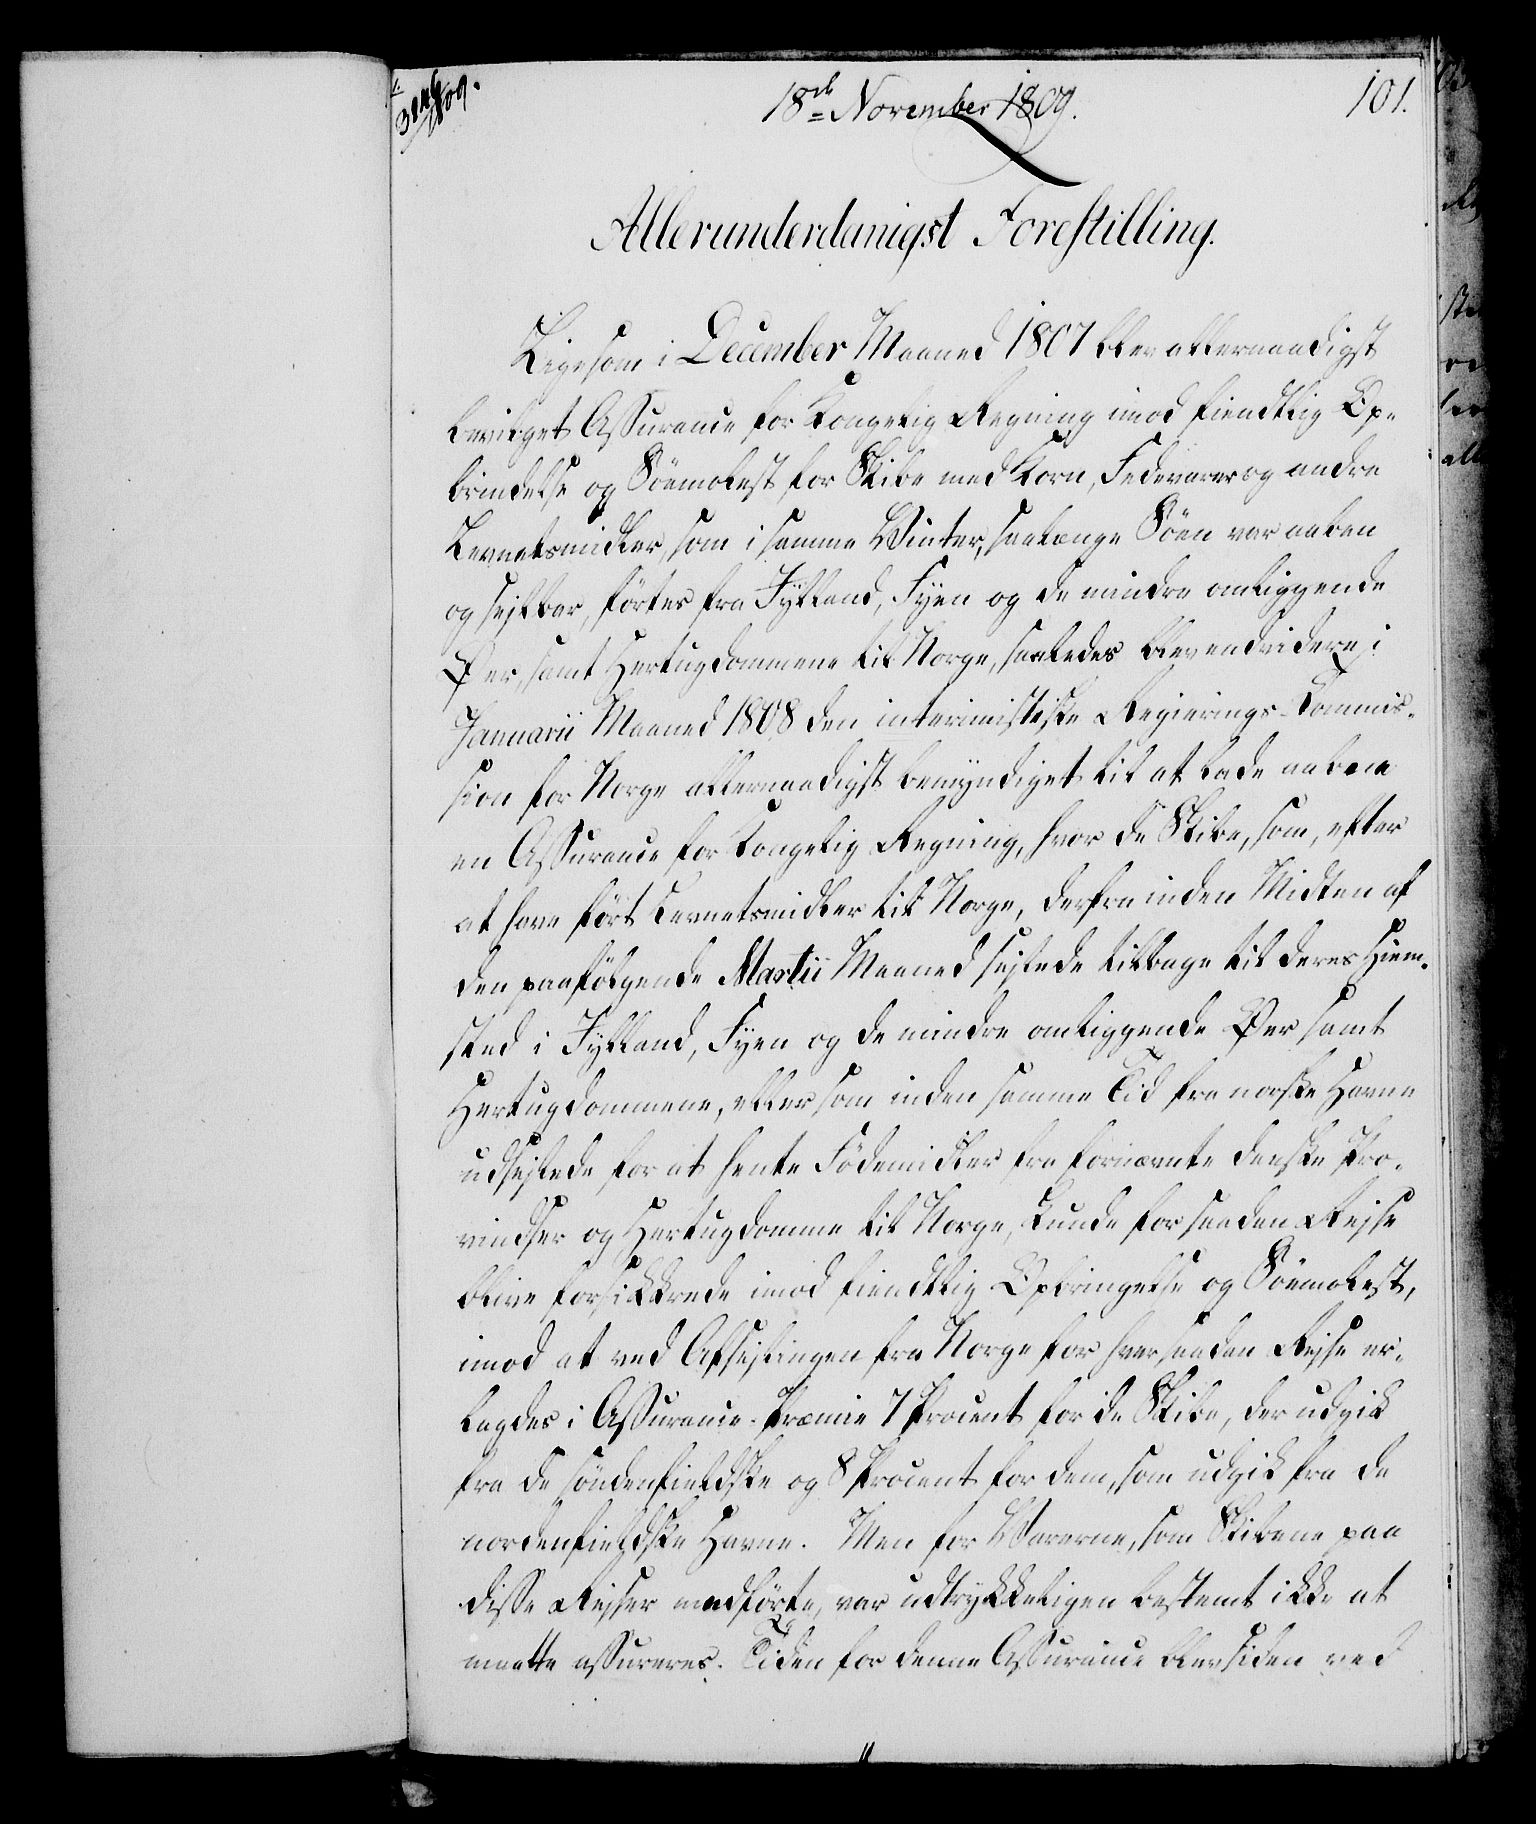 18de November 1809.
101.
Allerunderdanigst Forestilling.
Ligesom i December Maaned 1807 blev allernaadigst
bevilget Assurance for Kongelig Regning imod fiendtlig Op-
bringelse og Söemolest for Skibe med Korn, Fedevarer og andre
Levnetsmidler, som i samme Winter, saalænge Söen var aaben
og sejlbar, förtes fra Jylland, Fyen og de mindre omliggende
Øer, samt Hertugdommene til Norge, saaledes blev endvidere i
Januarii Maaned 1808 den interimistiske Regierings-Commis-
sion for Norge allernaadigst bemyndiget til at lade aabne
en Assurance for Kongelig Regning, hvor de Skibe, som, efter
at have fört Levnetsmidler til Norge, derfra inden Midten af
den paafölgende Martii Maaned sejlede tilbage til deres Hiem-
sted i Jylland, Fyen og de mindre omliggende Øer samt
Hertugdommene, eller som inden samme Tid fra norske Havne
udsejlede for at hente Födemidler fra fornævnte danske Pro-
vindser og Hertugdomme til Norge, kunde for saadan Rejse
blive forsikkrede imod fiendtlig Opbringelse og Söemolest,
imod at ved Afsejlingen fra Norge for hver saadan Rejse er-
lagdes i Assurance-Præmie 7 Procent for de Skibe, der udgik
fra de söndenfieldske og 8 Procent for dem, som udgik fra de
nordenfieldske Havne. Men for Varerne, som Skibene paa
disse Rejser medförte, var udtrykkeligen bestemt ikke at
maatte assureres. Tiden for denne Assurance blev siden ved